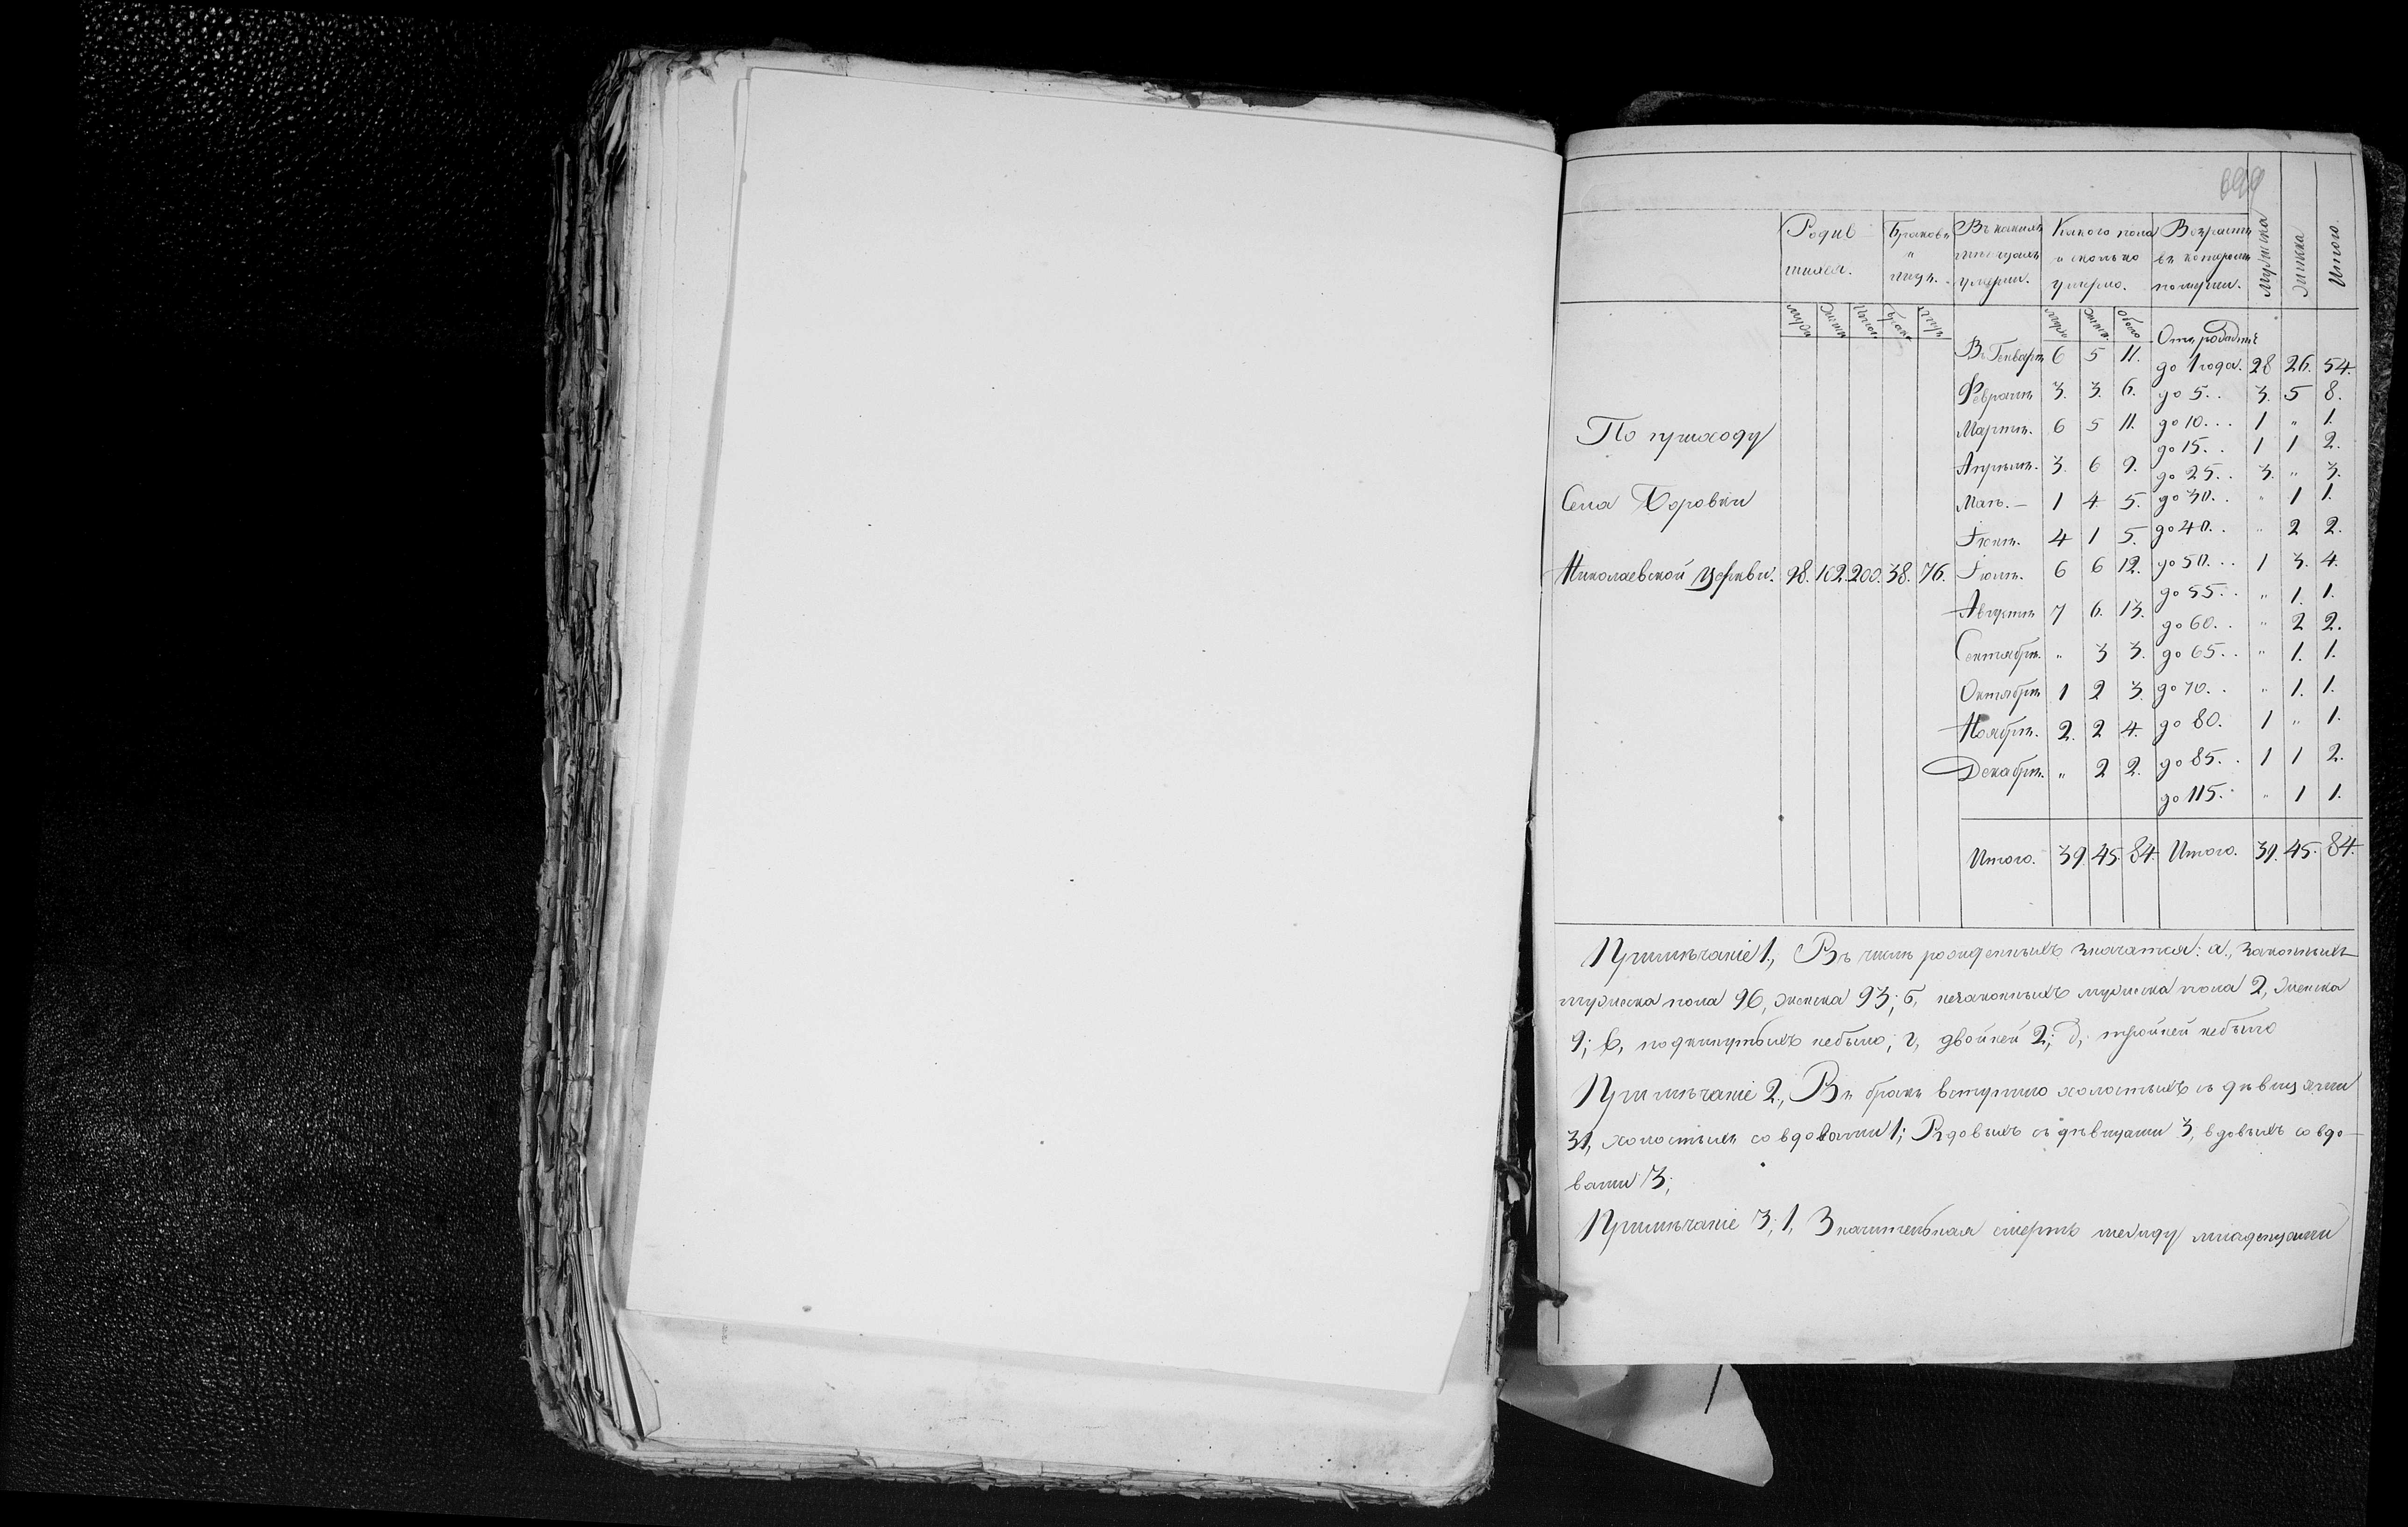 699
Родив Браковъ Въ какихъ Какого пола Возрастъ Мужска Женска Итого
шихся. и мѣсяцахъ и сколько въ которомъ
лицъ. умерли. умерло. померли.
Мужс Женск Итого Брак. Лицъ Мужс Женск. Обоего Отъ рожденія
Въ Генварѣ 6 5 11. до 1 года. 28 26. 54.
Февралѣ 3. 3. 6. до 5.. 3. 5 8.
Мартѣ. 6 5 11. до 10... 1 " 1.
По приходу
до 15.. 1 1 2.
Апрѣлѣ. 3. 6 9. до 25.. 3. " 3.
Села Боровки Маѣ.– 1 4. 5. до 30.. " 1 1.
Іюнѣ. 4 1 5. до 40.. " 2 2.
Николаевской Церкви. 98. 102. 200. 38. 76. Іюлѣ. 6 6 12. до 50... 1 3. 4.
до 55.. " 1. 1.
Августѣ 7 6. 13. до 60.. " 2 2.
Сентябрѣ. " 3 3. до 65.. " 1. 1.
Октябрѣ 1 2 3. до 70.. " 1. 1.
Ноябрѣ. 2. 2 4. до 80. 1 " 1.
Декабрѣ. " 2 2. до 85.. 1 1 2.
до 115.. " 1 1.
Итого. 39. 45. 84. Итого. 39. 45. 84.
Примѣчаніе 1., Въ числѣ рожденныхъ значатся: а., законныхъ
мужеска пола 96, женска 93; б, незаконныхъ мужеска пола 2, женска
9; в, подкинутыхъ небыло; г, двойней 2; д, тройней небыло
Примѣчаніе 2., Въ бракъ вступило холостыхъ съ дѣвицами
31, холостыхъ со вдовами 1; Вдовыхъ съ дѣвицами 3, вдовыхъ со вдо–
вами 3;
Примѣчаніе 3; 1, Значительная смерть между младенцами